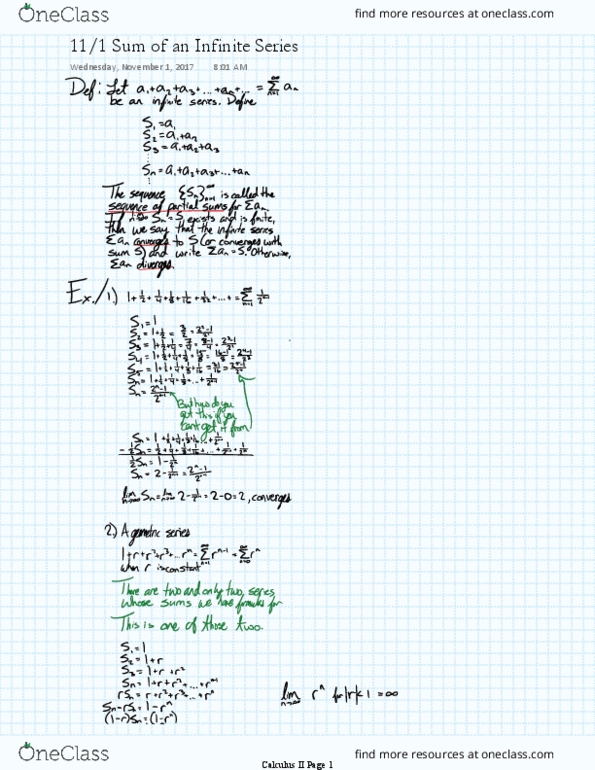 OneClass
find more resources at oneclass.com
11/1 Sum of an Infinite Series
Wednesday, November 1, 2017 8:01 AM
Def: Let a₁+a₂+a₃+...+aₙ+... = Σ_{n=1}^∞ aₙ
be an infinite series. Define
S₁=a₁
S₂=a₁+a₂
S₃=a₁+a₂+a₃
Sₙ=a₁+a₂+a₃+...+aₙ
The sequence {Sₙ}_{n=1}^∞ is called the
sequence of partial sums for Σaₙ
If lim_{n→∞} Sₙ=S exists and is finite,
then we say that the infinite series
Σaₙ converges to S (or converges with
sum S) and write Σaₙ=S. Otherwise,
Σaₙ diverges.
Ex./1.) 1+1/2+1/4+1/8+1/16+1/32+...+=Σ
S₁=1
S₂=1+1/2=3/2=
S₃=1+1/2+1/4=7/4=
S₄=1+1/2+1/4+1/8=15/8=
S₅=
Sₙ=1+1/2+1/4+1/8+...+
Sₙ=
But how do you
get this if you
can't get it from
Sₙ=1+1/2+1/4+1/8+...+
-1/2Sₙ=
1/2Sₙ=1-
Sₙ=2-
lim_{n→∞} Sₙ= =2-0=2, converges
2) A geometric series
1+r+r²+r³+...rⁿ=Σ_{n=1}^∞ rⁿ⁻¹=Σ_{n=0}^∞ rⁿ
when r is constant
There are two and only two, series
whose sums we have formulas for
This is one of those two.
S₁=1
S₂=1+r
S₃=1+r+r²
Sₙ=1+r+r²+...+rⁿ⁻¹
rSₙ=r+r²+r³+...+rⁿ
lim_{n→∞} rⁿ for |r|<1 =∞
Sₙ-rSₙ=1-rⁿ
(1-r)Sₙ=(1-rⁿ)
OneClass
find more resources at oneclass.com
Calculus II Page 1